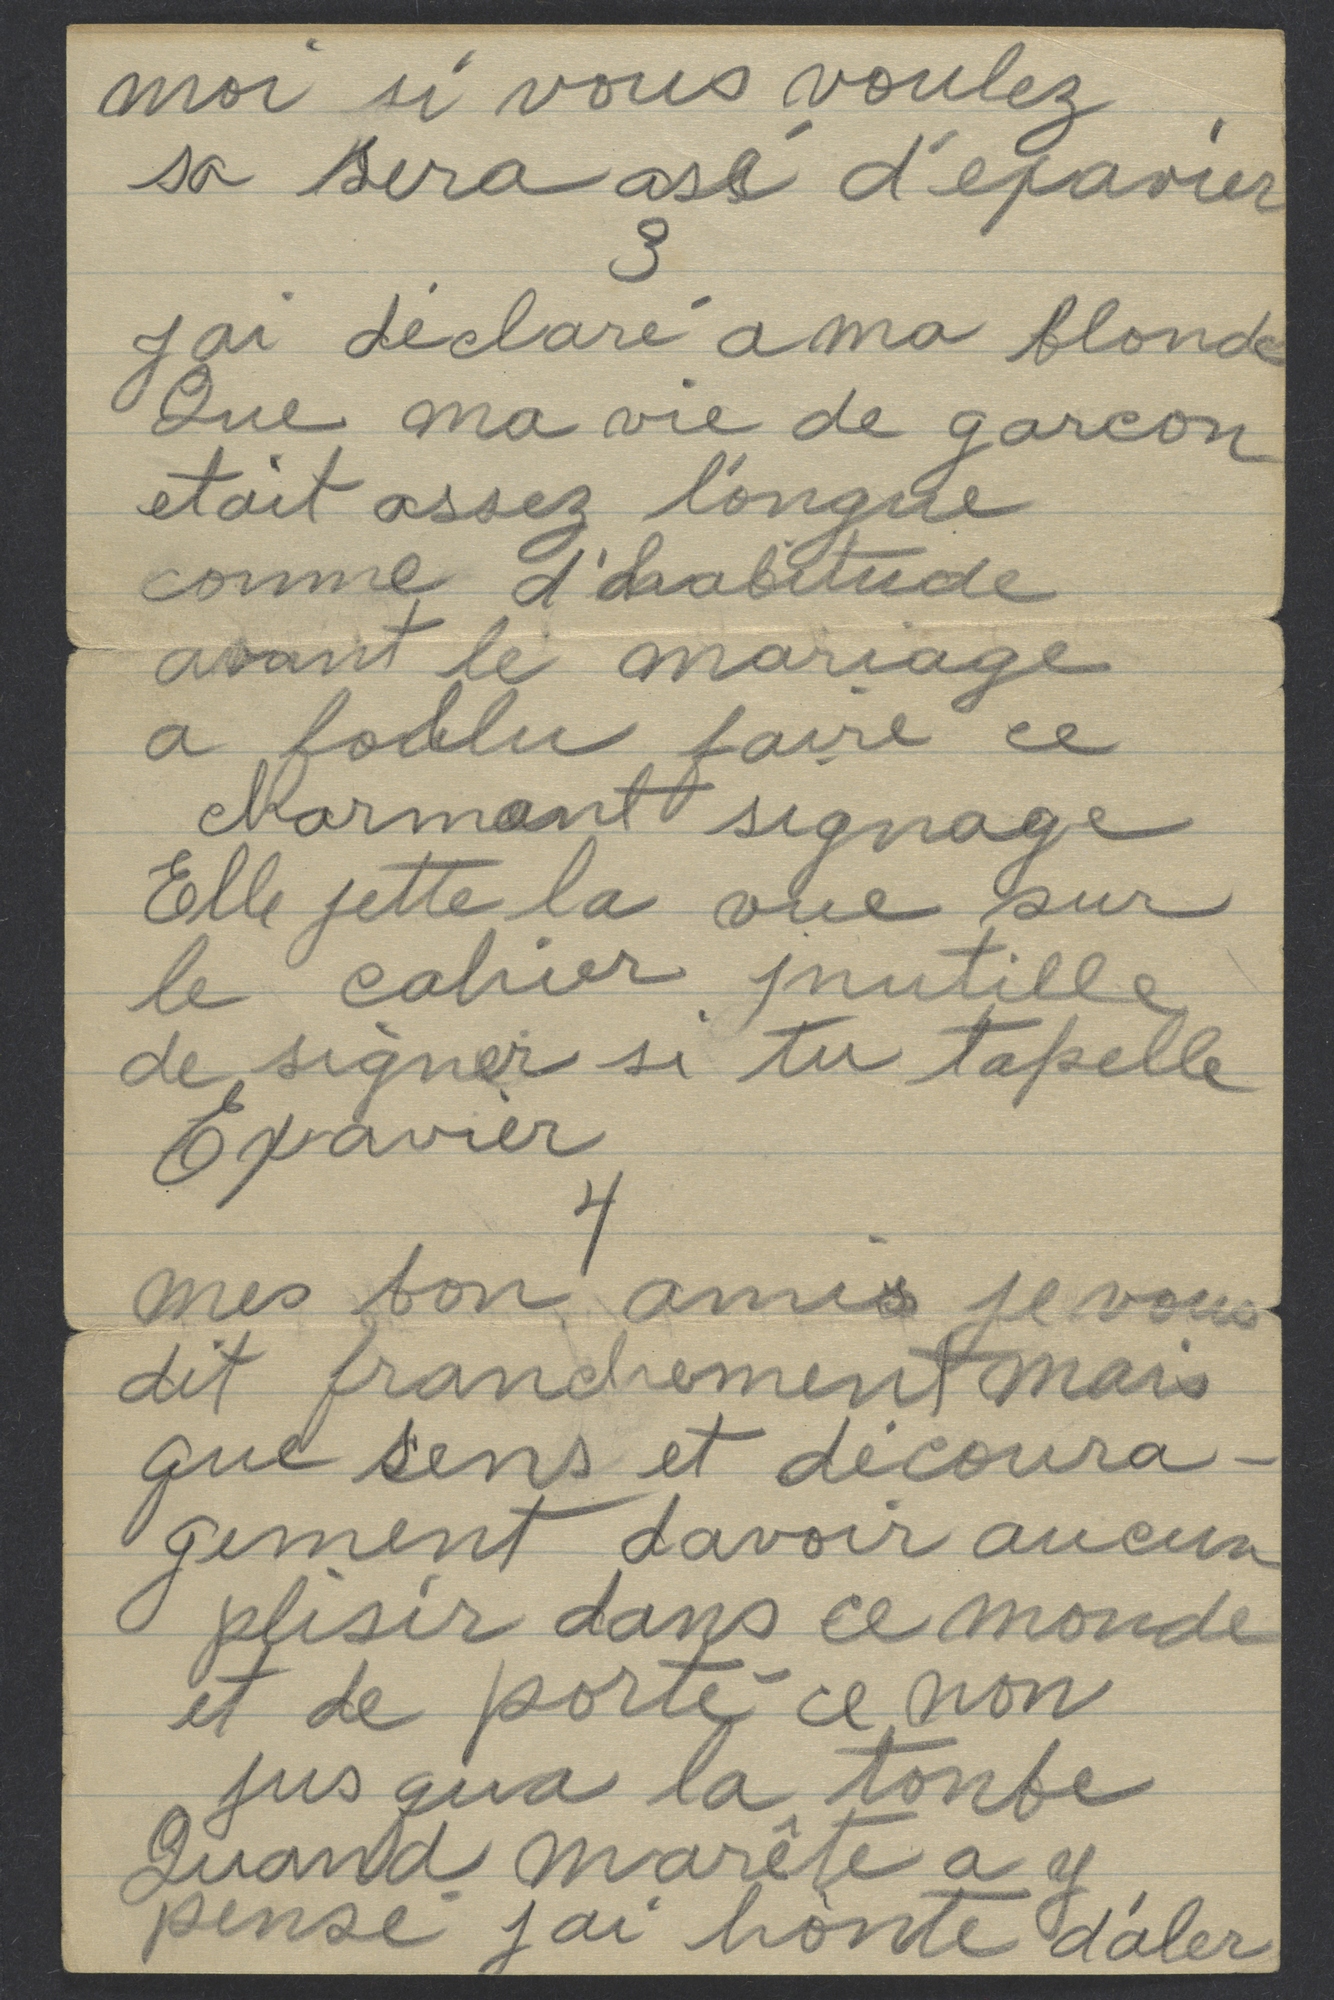 moi si vous voulez
sa sera asé d'epavier
3
jai déclaré a ma blonde
Que ma vie de garcon
etait assez longue
comme d'habitude
avant le mariage
a fodlu faire ce
charmant signage
Elle jette la vue sur
le cahier inutille
de signer si tu tapelle
Epavier
4
mes bon amis je vous
dit franchement mais
que sens et découra-
gement davoir aucun
plisir dans ce monde
et de porté ce non
jusqua la tonbe
Quand marête a y
pensé jai honte d'aler